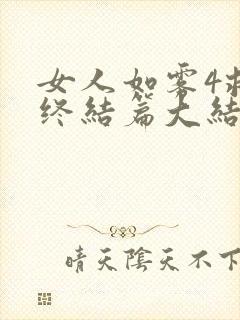 女人如雾4
终结篇大结
晴天陰天不下